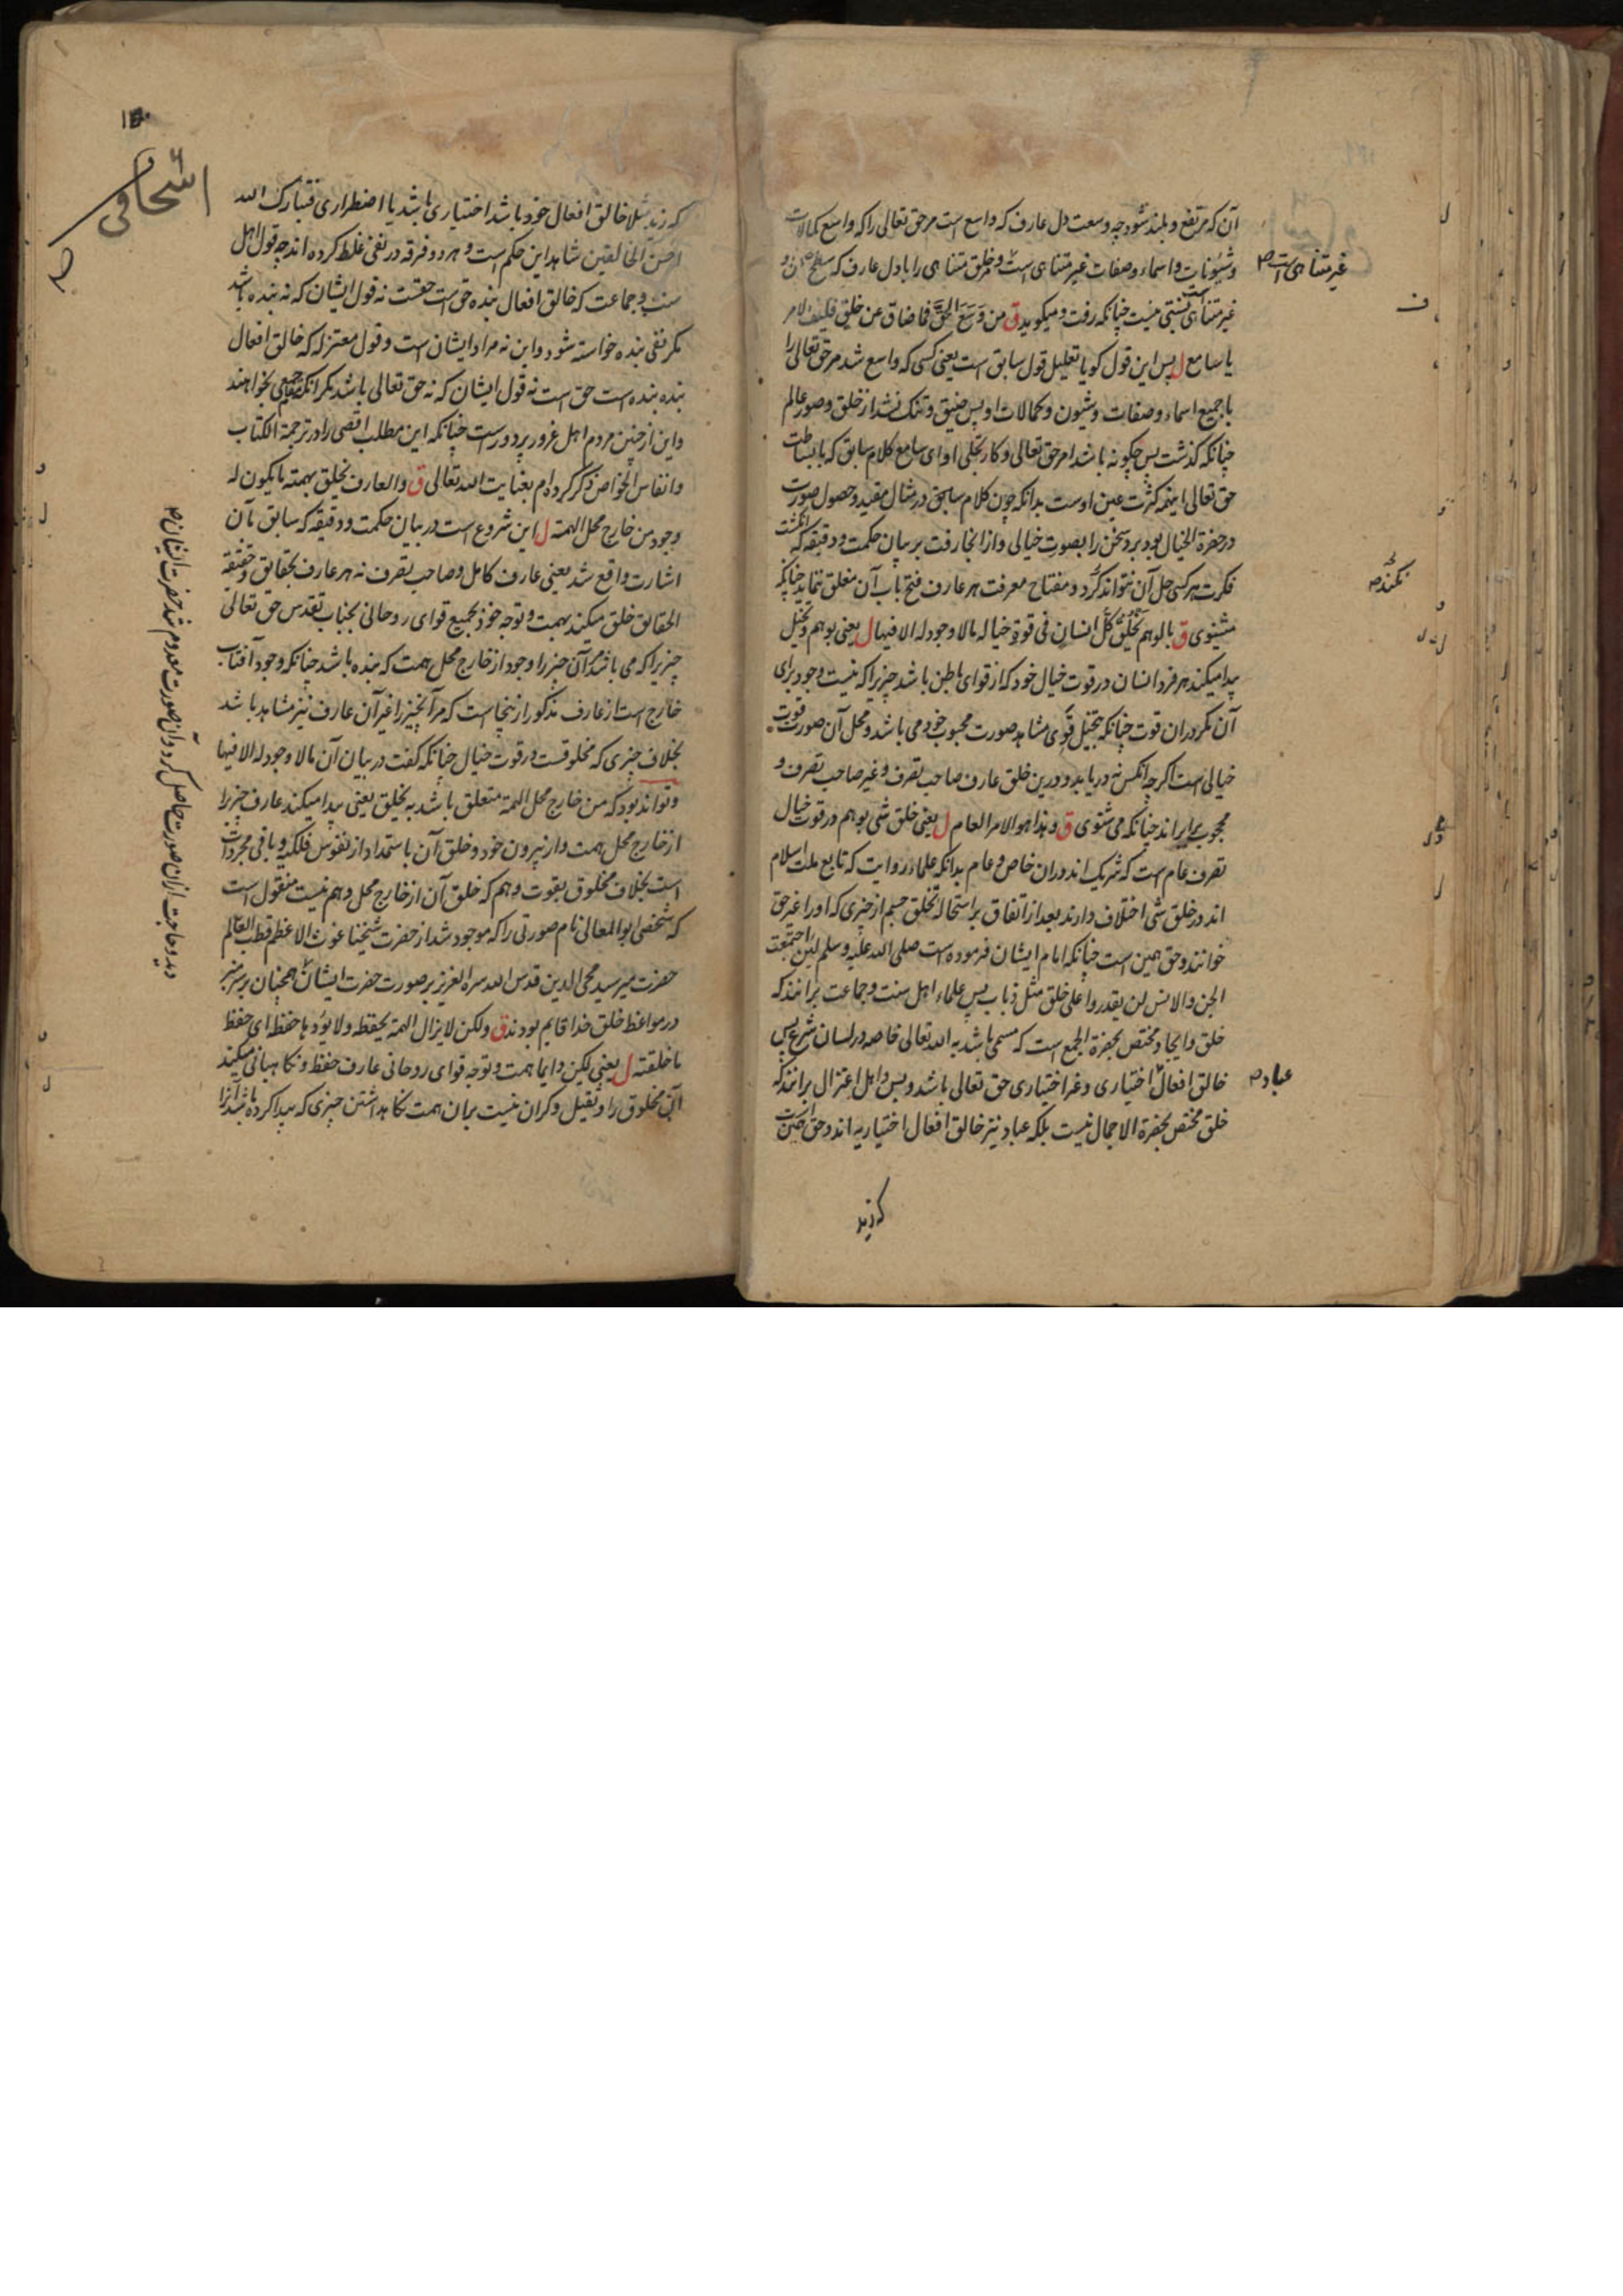 آن که مرتفع و بلند شود چه وسعت دل عارف که واسع است مر حق تعالی را که واسع کمالات
و شیونات و اسماء و صفات غیر متناهی است و خلق متناهی را با دل عارف که
غیر متناهی است
غیر متناهی است نسبتی نیست چنانکه رفت و میکوید ق من وَسَعَ الحَقَّ فما ضاق عن خلق فکیف الامر
یا سامع ل پس این قول کویا تعلیل قول سابق است یعنی کسی که واسع شد مر حق تعالی را
با جمیع اسماء و صفات و شیون و کمالات او پس ضیق و تنک نشد از خلق و صور عالم
چنانکه کذشت پس چکونه باشد امر حق تعالی و کار تجلی او ای سامع کلام سابق که با بساطت
حق تعالی اینهمه کثرت عین اوست بدانکه چون کلام سابق در مثال مقید و حصول صورت
در حضرة الخیال بود برد سخن را بصورت خیالی و از انجا رفت بر بیان حکمت و دقیقه که انکشت
فکرت هر کسی حل آن نتواند کرد و مفتاح معرفت هر عارف فتح باب آن مغلق ننماید چنانکه
میشنوی ق بالوهم یَخلُقُ کُلُّ انسانٍ فی قوة خیاله ما لا وجود له الا فیها ل یعنی بوهم و تخیل
پیدا میکند هر فرد انسان در قوت خیال خود که از قوای باطن باشد چیزیرا که نیست وجود برای
آن مکر در ان قوت چنانکه بتخیل قوی مشاهد صورت محبوب خود می باشد و محل آن صورت قوت
خیالی است اکرچه انکس نه دریابد و درین خلق عارف صاحب تصرف و غیر صاحب تصرف و
محجوب برابر اند چنانکه می شنوی ق و هذا هو الامر العام ل یعنی خلق شی بوهم در قوت خیال
تصرف عام است که شریک اند در ان خاص و عام بدانکه علماء روایت که تابع ملت اسلام
اند در خلق شی اختلاف دارند بعد از اتفاق بر استحاله تخلق جسم از چیزی که او را غیر حق
خوانند و حق همین است چنانکه امام ایشان فرموده است صلی الله علیه و سلم لئن اجتمعت
الجن والانس لن یقدروا علی خلق مثل ذباب پس علماء اهل سنت و جماعت برانند که
خلق و ایجاد مختص بحضرة الجمع است که مسمی باشد به الله تعالی خاصه در لسان شرع پس
خالق افعال اختیاری و غیر اختیاری حق تعالی باشد و بس و اهل اعتزال برانند که
عباد
خلق مختص بحضرة الاجمال نیست بلکه عباد نیز خالق افعال اختیاریه اند و حق
که زید
که زید مثلا خالق افعال خود باشد اختیاری باشد یا اضطراری فتبارک الله
احسن الخالقین شاهد این حکم است و هر دو فرقه در نفی غلط کرده اند چه قول اهل
سنت و جماعت که خالق افعال بنده حق است حقست نه قول ایشان که نه بنده باشد
مکر نفی بنده خواسته شود و این نه مراد ایشان است و قول معتزله که خالق افعال
بنده بنده است حق است نه قول ایشان که نه حق تعالی باشد مکر انکه
و این از چنین مردم اهل غرور پر دورست چنانکه این مطلب اقصی را در ترجمة الکتاب
و انفاس الخواص ذکر کرده ام بعنایت الله تعالی ق والعارف یخلق بهمته ما یکون له
وجود من خارج محل الهمة ل این شروع است در بیان حکمت و دقیقه که سابق بآن
اشارت واقع شد یعنی عارف کامل و صاحب تصرف نه هر عارف بحقایق و حقیقة
الحقایق خلق میکند بهمت و توجه خود بجمیع قوای روحانی بجناب تقدس حق تعالی
چیزیرا که می باشد مر آن چیز را وجود از خارج محل همت که بنده باشد چنانکه وجود آفتاب
خارج است از عارف مذکور ازینجا است که مر آنچیز را غیر آن عارف نیز مشاهد باشد
بخلاف چیزی که مخلوقست در قوت خیال چنانکه کفت در بیان آن ما لا وجود له الا فیها
و تواند بود که من خارج محل الهمة متعلق باشد به یخلق یعنی پیدا میکند عارف چیز را
از خارج محل همت و از بیرون خود و خلق آن باستمداد از نفوس فلکیه و باقی مجردات
است بخلاف مخلوق بقوت وهم که خلق آن از خارج محل وهم نیست منقول است
که شخصی ابو المعالی نام صورتی را که موجود شد از حضرت شیخنا غوث الاعظم قطب العالم
حضرت میر سید محی الدین قدس الله سره العزیز بر صورت حضرت ایشان همچنان بر سر منبر
دید و حاجت ازان صورت حاصل کرد و آن صورت معدوم شد حضرت ایشان
در مواعظ خلق خدا قایم بودند ق ولکن لا یزال الهمة یحفظه ولا یؤدها حفظه ای حفظ
ما خلقته ل یعنی لیکن دایما همت و توجه قوای روحانی عارف حفظ و نکاهبانی میکند
آن مخلوق را و ثقیل و کران نیست بران همت نکاهداشتن چیزی که پیدا کرده باشد آنرا